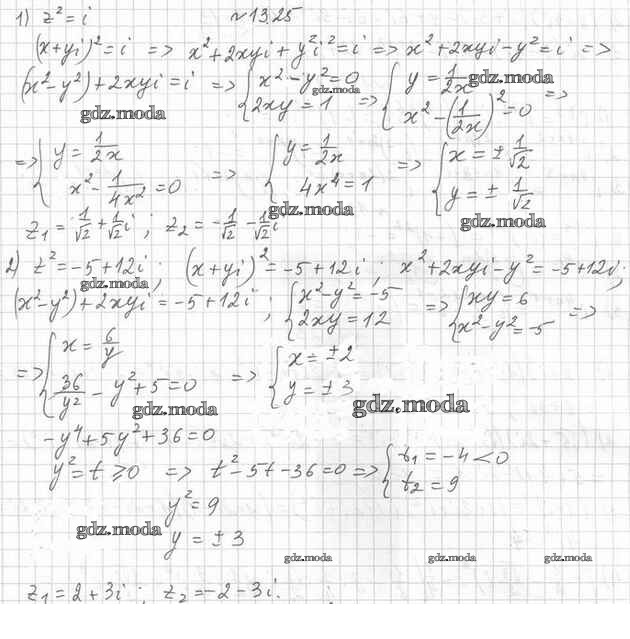 1) z² = i №13.25
(x+yi)² = i => x² + 2xyi + y²i² = i => x² + 2xyi - y² = i =>
(x² - y²) + 2xyi = i => { x² - y² = 0 ; 2xy = 1 => { y = 1/2x ; x² - (1/2x)² = 0 =>
gdz.moda gdz.moda gdz.moda
=> { y = 1/2x ; x² - 1/4x² = 0 => { y = 1/2x ; 4x⁴ = 1 => { x = ± 1/√2 ; y = ± 1/√2
gdz.moda gdz.moda
z₁ = 1/√2 + 1/√2 i ; z₂ = - 1/√2 - 1/√2 i
2) z² = -5+12i ; (x+yi)² = -5+12i ; x² + 2xyi - y² = -5+12i ;
gdz.moda
(x² - y²) + 2xyi = -5+12i ; { x² - y² = -5 ; 2xy = 12 => { xy = 6 ; x² - y² = -5 =>
=> { x = 6/y ; 36/y² - y² + 5 = 0 => { x = ±2 ; y = ±3
gdz.moda gdz.moda
-y⁴ + 5y² + 36 = 0
y² = t ⩾ 0 => t² - 5t - 36 = 0 => { t₁ = -4 < 0 ; t₂ = 9
y² = 9
gdz.moda
y = ±3
gdz.moda gdz.moda gdz.moda
z₁ = 2 + 3i ; z₂ = -2 - 3i.